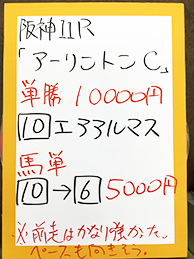 阪神11R
「アーリントンC」
単勝 10000円
10 エララルマス
馬単
10→6 5000円
※前走はかなり強かった。
ペースも向きそう。